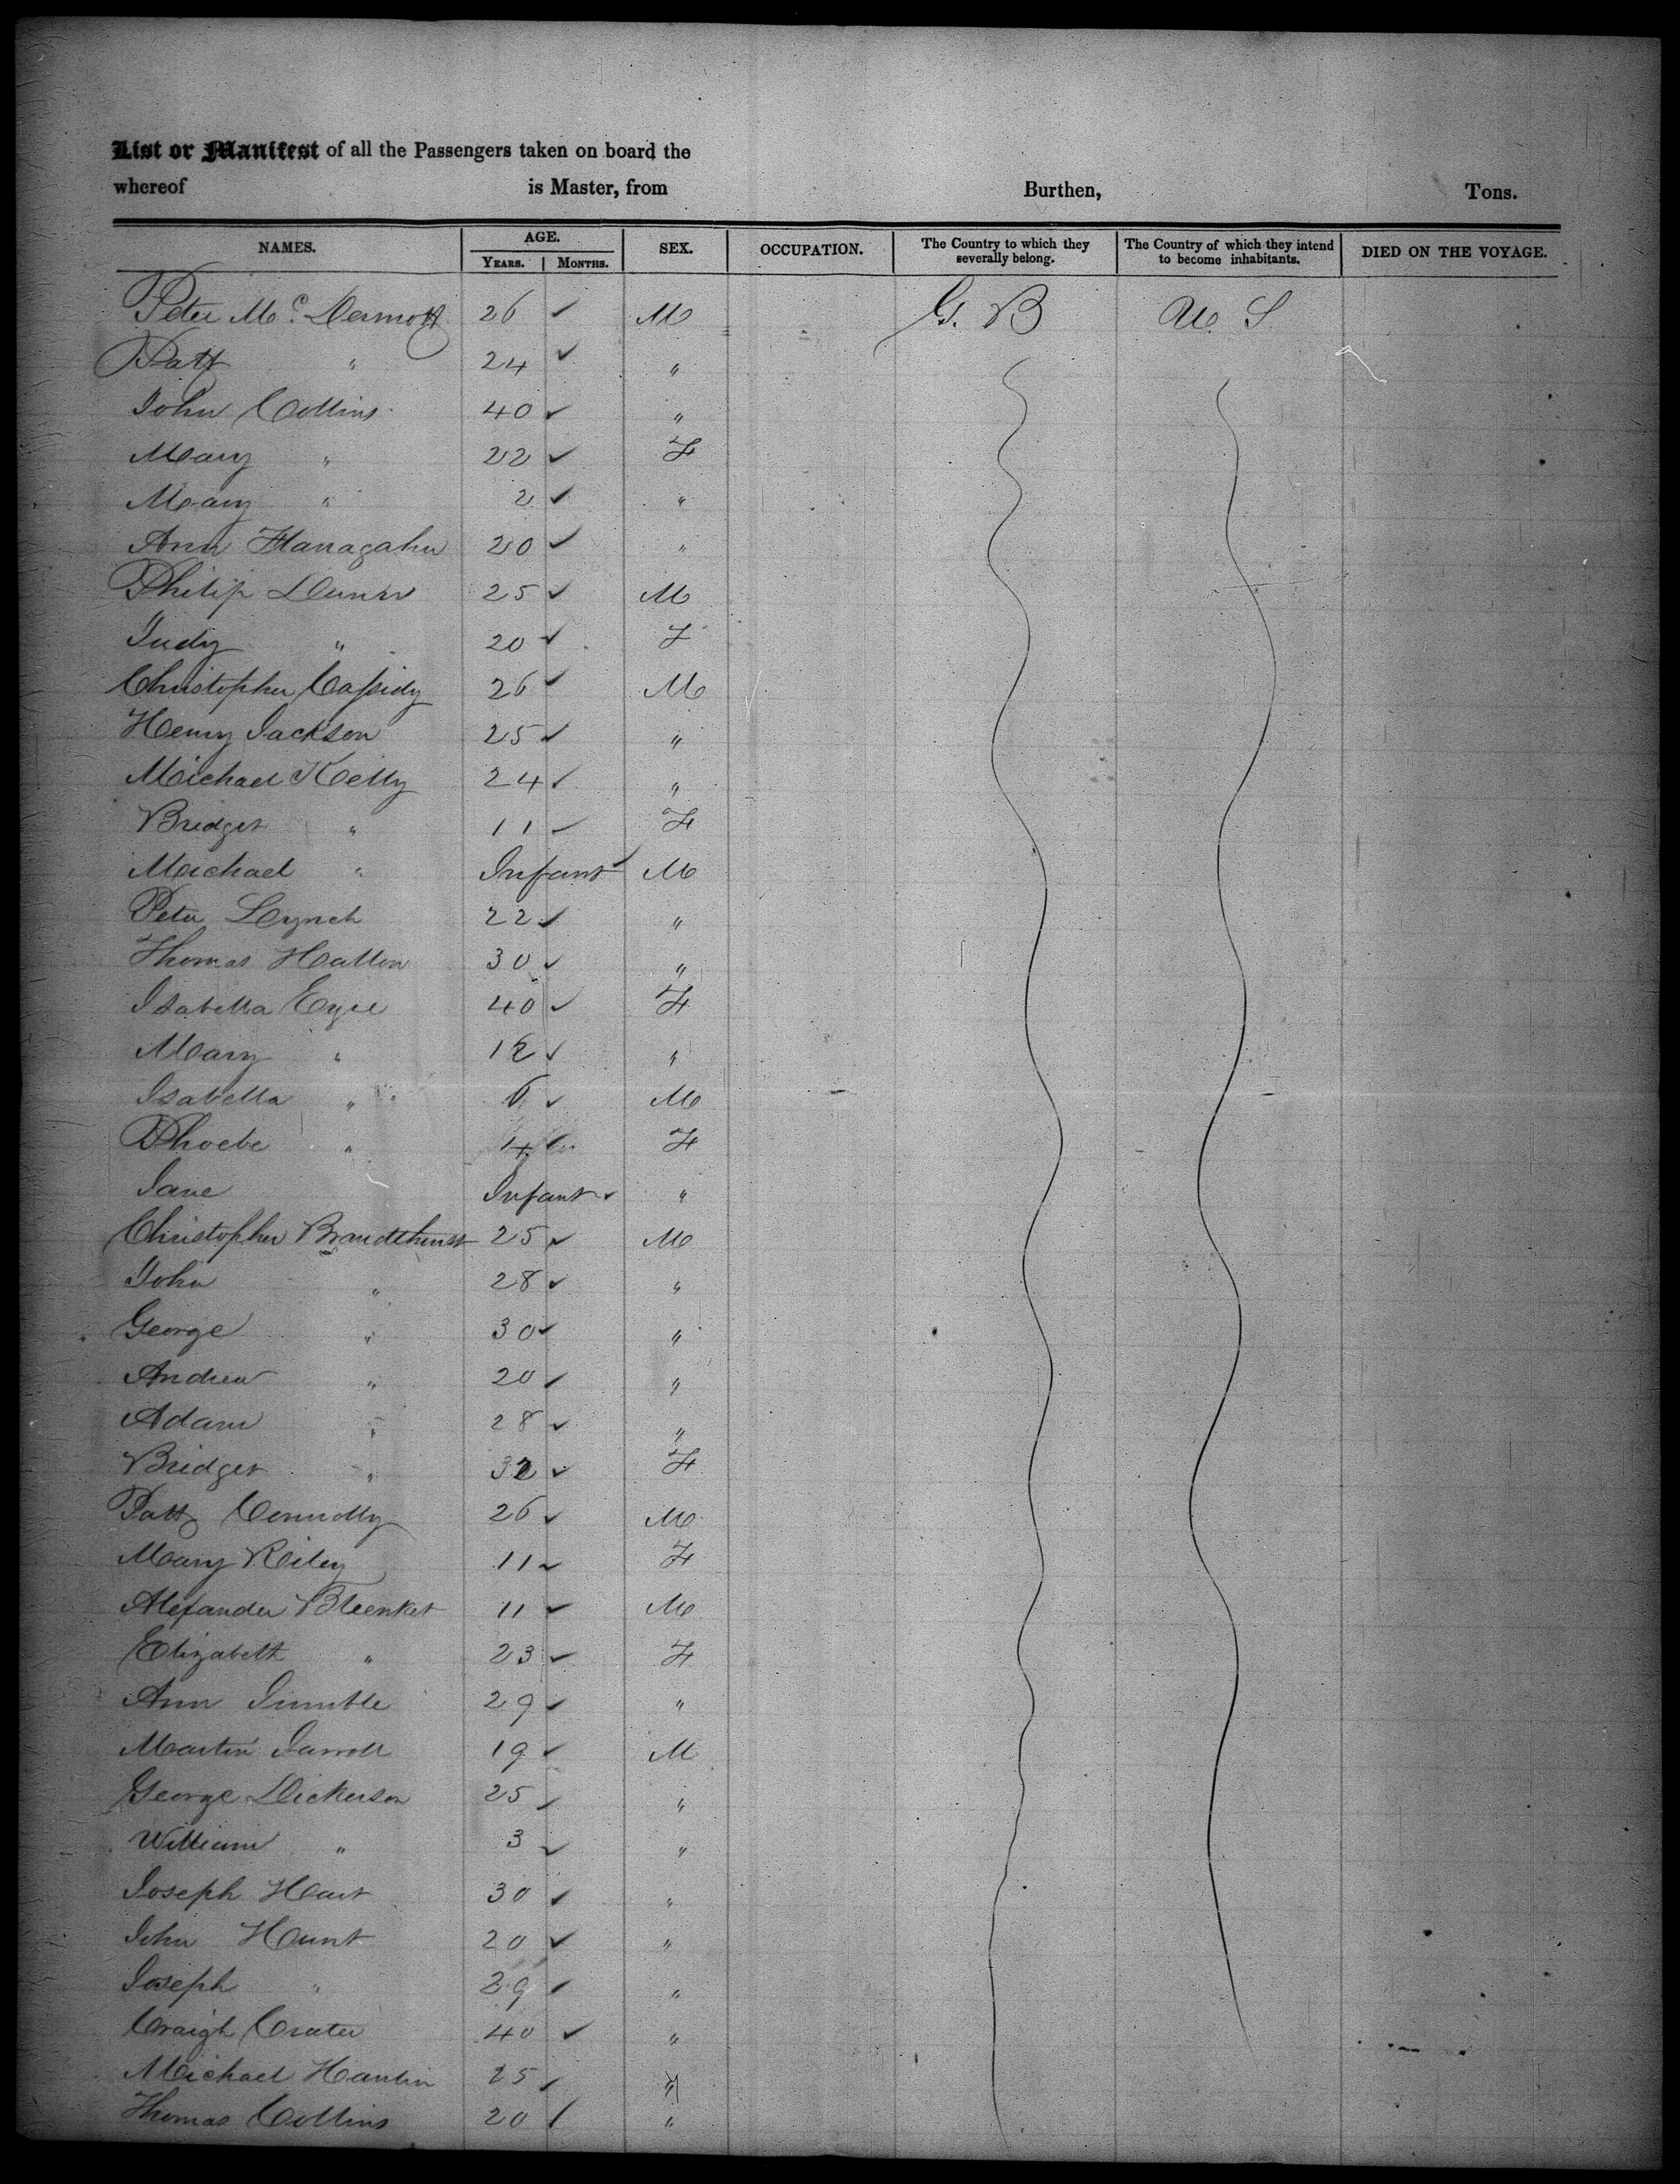 List or Manifest of all the Passengers taken on board the
whereof is Master, from Burthen, Tons.
NAMES. AGE. YEARS. MONTHS. SEX. OCCUPATION. The Country to which they severally belong. The Country of which they intend to become inhabitants. DIED ON THE VOYAGE.
Peter McDermott 26 ✓ M G. B U. S
Patt " 24 ✓ "
John Collins 40 ✓ "
Mary " 22 ✓ F
Mary " 2 ✓ "
Ann Flanagahn 20 ✓ "
Philip Dunn 25 ✓ M
Judy " 20 ✓ F
Christopher Cassidy 26 ✓ M
Henry Jackson 25 ✓ "
Michael Kelly 24 ✓ "
Bridget " 11 ✓ F
Michael " Infant ✓ M
Peter Lynch 22 ✓ "
Thomas Hatton 30 ✓ "
Isabella Eyre 40 ✓ F
Mary " 12 ✓ "
Isabella " 6 ✓ M
Phoebe " 4 F
Jane Infant ✓ "
Christopher Brandthurst 25 ✓ M
John " 28 ✓ "
George " 30 ✓ "
Andrew " 20 ✓ "
Adam " 28 ✓ "
Bridget " 32 ✓ F
Patt Connolly 26 ✓ M
Mary Riley 11 ✓ F
Alexander Bleenket 11 ✓ M
Elizabeth " 23 ✓ F
Ann 29 ✓ "
Martin 19 ✓ M
George Dickerson 25 ✓ "
William " 3 ✓ "
Joseph Hart 30 ✓ "
John Hunt 20 ✓ "
Joseph " 29 ✓ "
Craigh Crater 40 ✓ "
Michael Hanlin 25 ✓ "
Thomas Collins 20 ✓ "